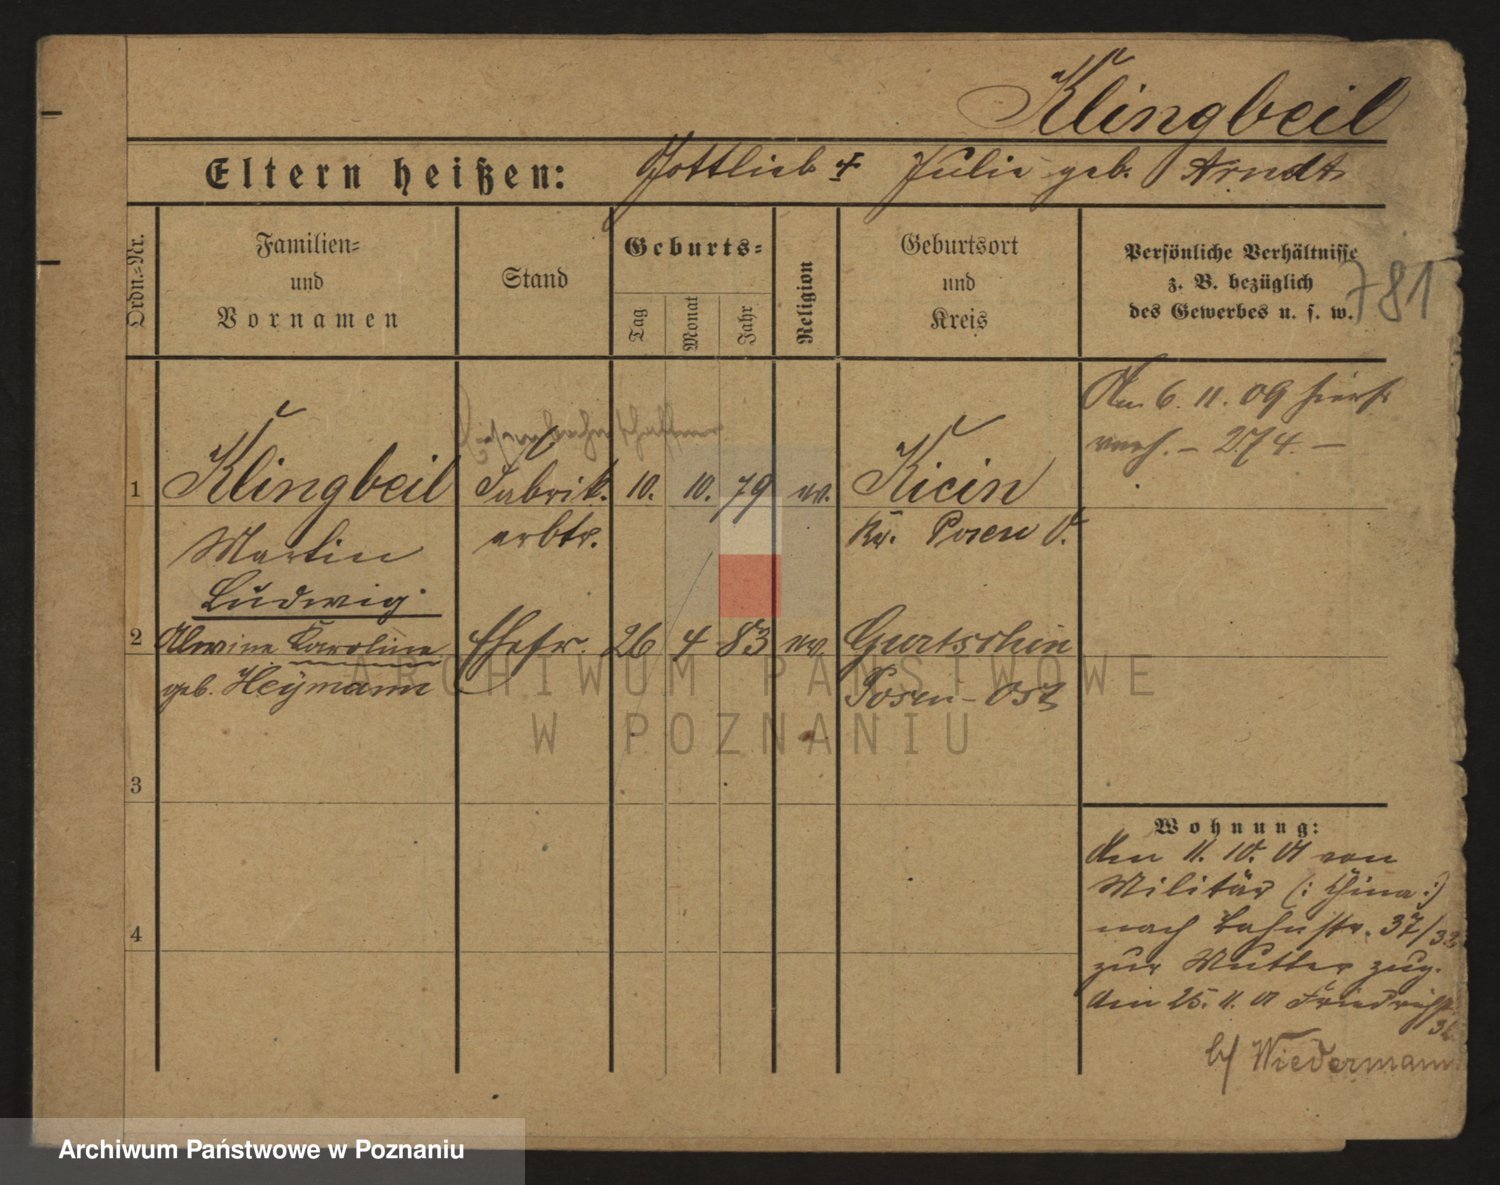 Klingbeil
Eltern heißen: Gottlieb + Julie geb. Arndt
Ordn.-Nr.
Familien-
und
Vornamen
Stand
Geburts-
Tag
Monat
Jahr
Religion
Geburtsort
und
Kreis
Persönliche Verhältnisse
z. B. bezüglich
des Gewerbes u. s. w.
781
Am 6. 11. 09 hiers.
verh. – 274. –
Eisenbahnschaffner
1 Klingbeil Fabrik. 10. 10. 79 ev. Kicin
Martin arbtr. Kr. Posen O.
Ludwig
2 Alwine Karoline Ehefr. 26 4 83 ev. Gurtschin
geb. Heymann Posen-Ost
3
4
Wohnung:
Am 11. 10. 01 von
Militär (: China :)
nach Bahnstr. 37/
zur Mutter zug.
Am 25. 11. 01
b/ Wiedermann
ARCHIWUM PAŃSTWOWE
W POZNANIU
Archiwum Państwowe w Poznaniu